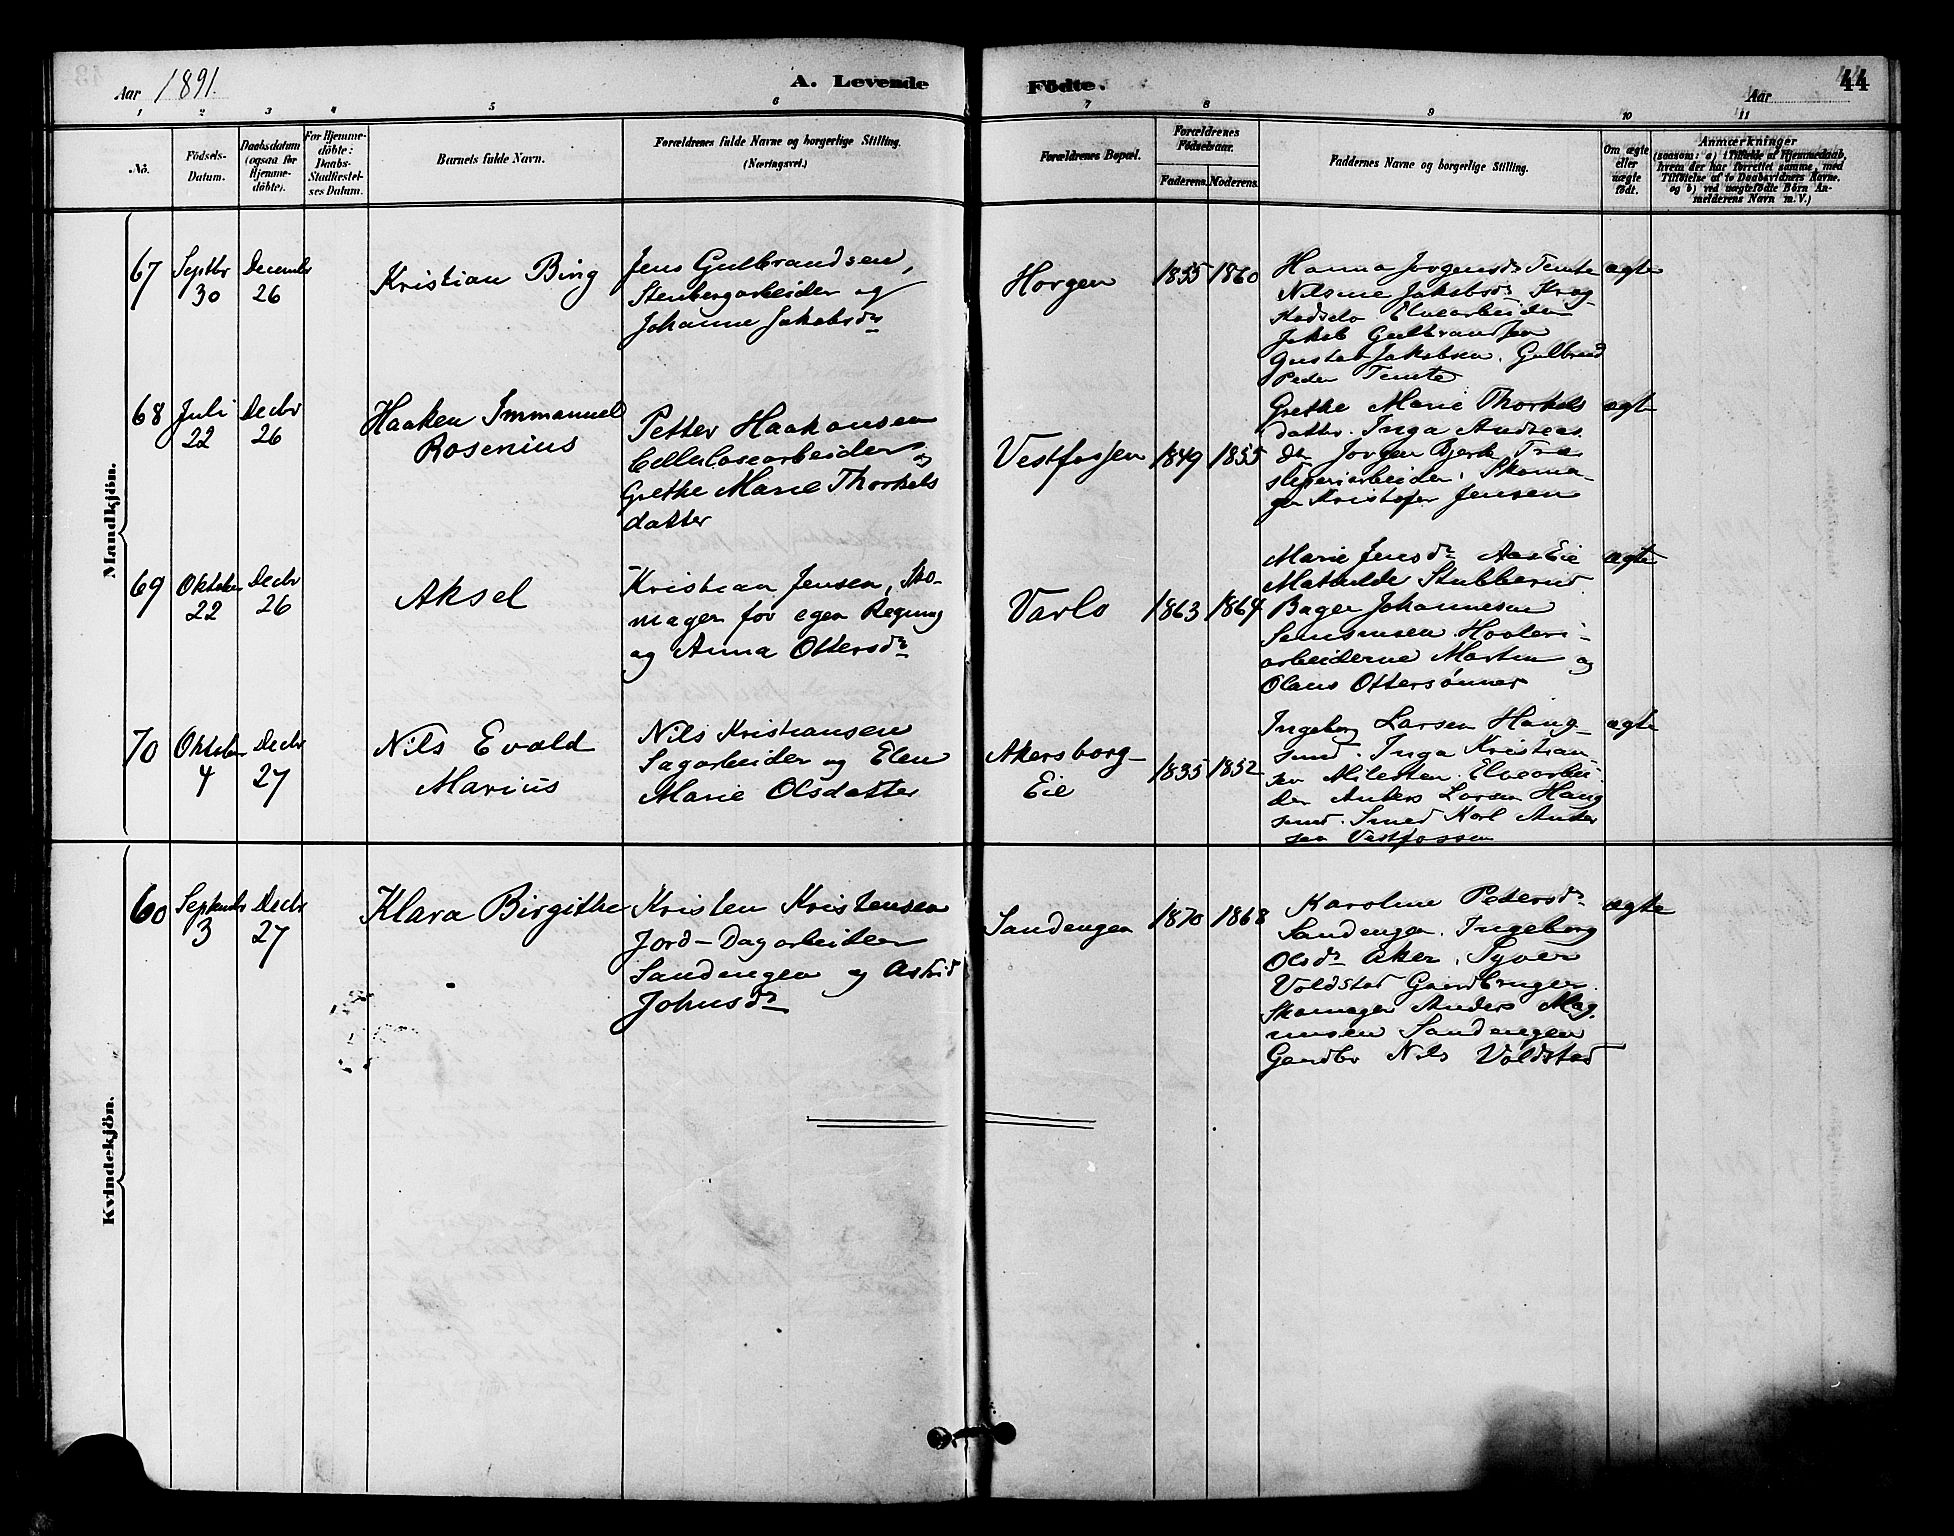 Aar 1891.
A. Levende Födte.
Aar
44
1 2 3 4 5 6 7 8 9 10 11
No.
Födsels-
Datum.
Daabsdatum
(ogsaa for
Hjemme-
döbte).
For Hjemme-
döbte:
Daabs-
Stadfæstel-
ses Datum.
Barnets fulde Navn.
Forældrenes fulde Navne og borgerlige Stilling.
(Næringsvei.)
Forældrenes Bopæl.
Forældrenes
Födselsaar.
Faderens. Moderens.
Faddernes Navne og borgerlige Stilling.
Om ægte
eller
uægte
födt.
Anmærkninger
(saasom: a) i Tilfælde af Hjemmedaab,
hvem der har forrettet samme, med
Tilföielse af to Daabsvidners Navne.
og b) ved uægtefödte Börn An-
melderens Navn m. V.)
Mandkjön.
67
Septbr
30
Decembr
26
Kristian Bing
Jens Gulbrandsen,
Stenbergarbeider og
Johanne Jakobsdr
Horgen
1855 1860
Hanna Jorgensdr Temte
Nilsine Jakobsdr. Krog-
stadselv. Elvearbeider
Jakob Gulbrandsen
Gustav Jakobsen. Gulbrand
Peder Temte
ægte
68
Juli
22
Decbr
26
Haaken Immanuel
Rosenius
Petter Haakonsen
Cellulosearbeider og
Grethe Marie Thorkels
datter
Vestfossen
1849 1855
Grethe Marie Thorkels
datter. Inga Andreas
dtr Jorgen Bjerk Træ
sliperiarbeider. Skoma-
ger Kristofer Jensen
ægte
69
Oktober
22
Decbr
26
Aksel
Kristian Jensen, Sko-
mager for egen Regning
og Anna Ottersdr
Varlo
1863 1864
Marie Jensdr Aas Eie
Mathilde Stubberud
Bager Johannesen
arbeiderne Morten og
Olaus Ottersønner
ægte
70
Oktober
4
Decbr
27
Nils Evald
Marius
Nils Kristiansen
Sagarbeider og Elen
Marie Olsdatter
Akersborg-
Eie
1835 1852
Ingeborg Larsen Haug-
sund. Inga Kristian-
sen Milesten. Elvearbei-
der Anders Larsen Haug
sund. Smed Karl Ander
sen Vestfossen
ægte
Kvindekjön.
60
Septembr
3
Decbr
27
Klara Birgithe
Kristen Kristensen
Jord-Dagarbeider
Sandengen og Astrid
Johnsdr
Sandengen
1870 1868
Karoline Pedersdr
Sandengen. Ingeborg
Olsdr Aker. Syver
Voldstad Gaardbruger.
Skomager Anders Mag-
nusen Sandengen
Gaardbr Nils Voldstad
ægte